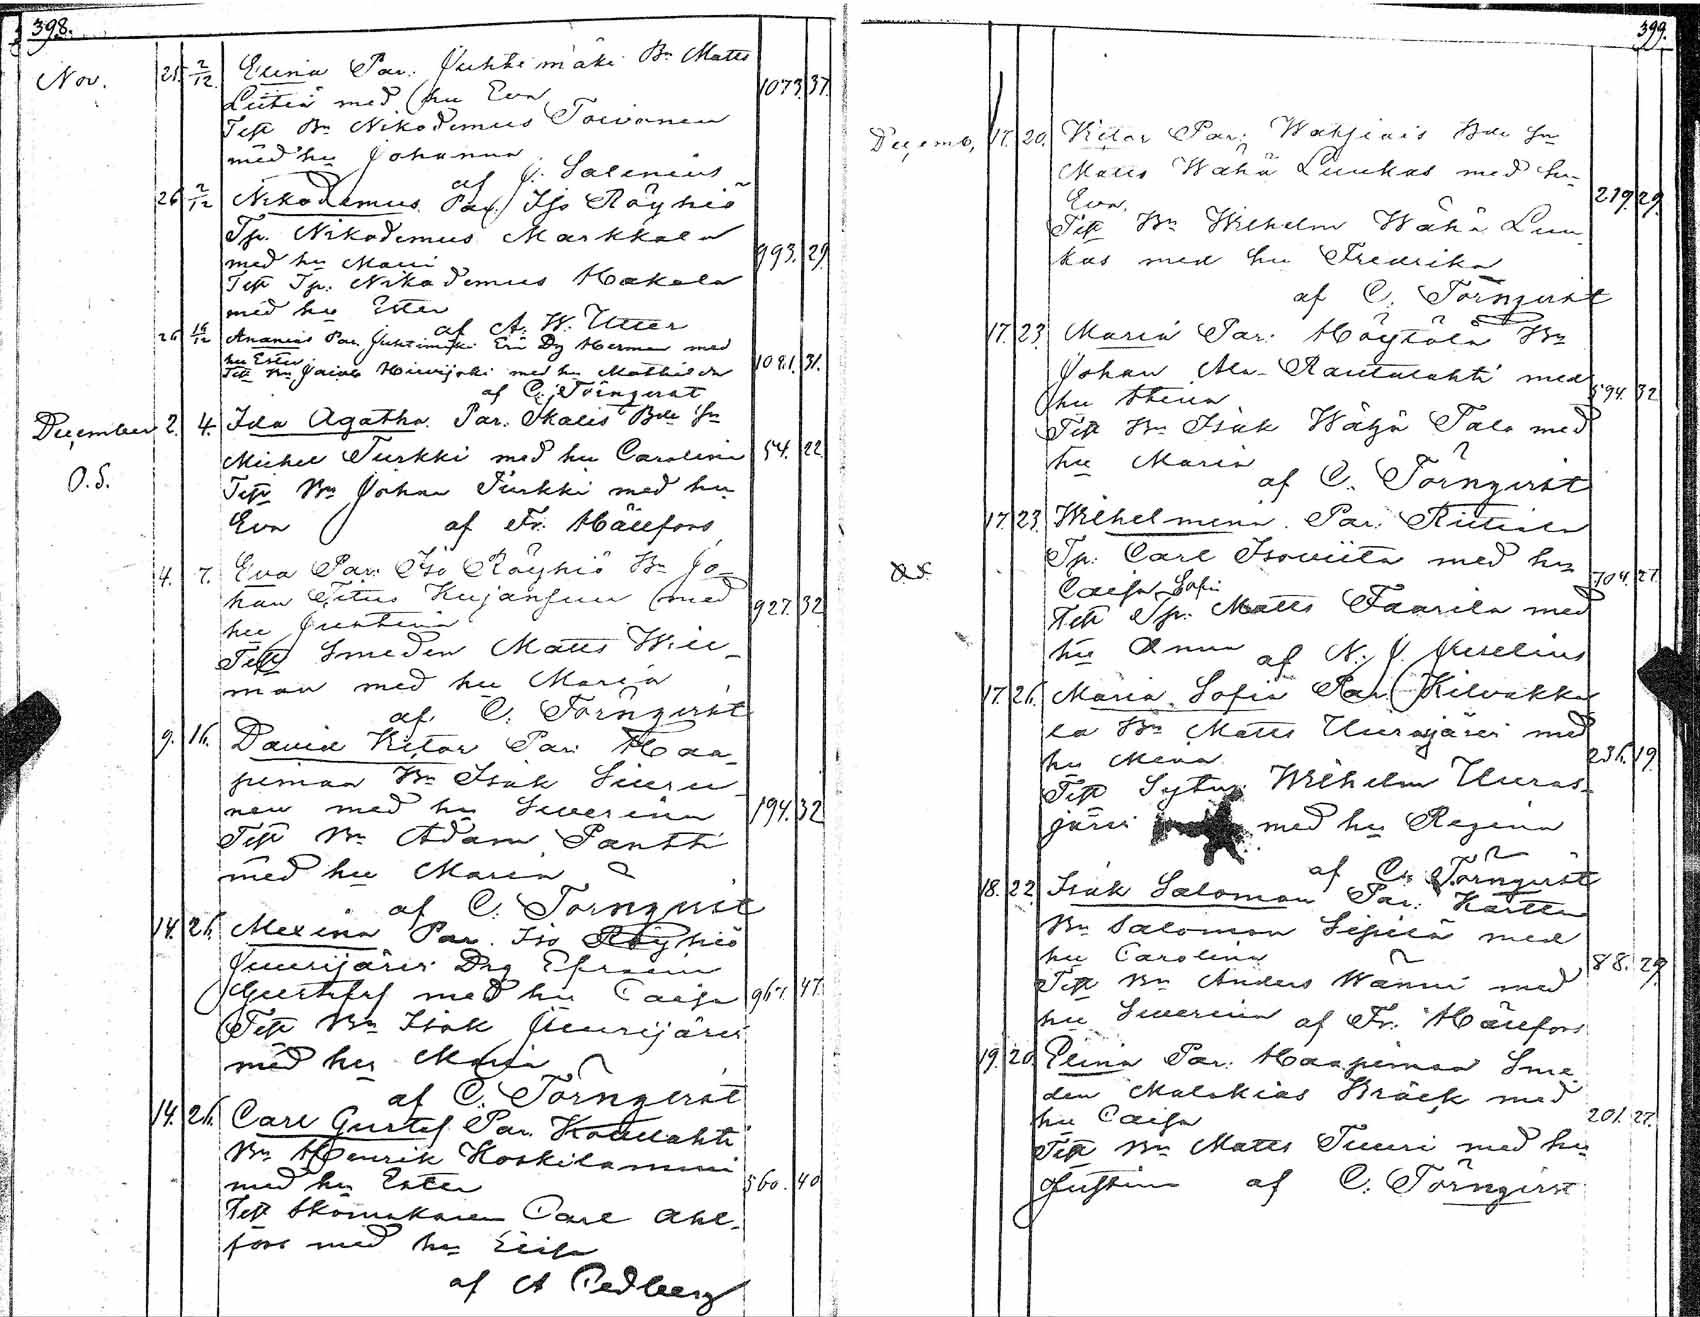 398.
Nov. 25 2/12 Elina Par. Juhtimäki Bn Matts
med hu Eva 1073. 37.
Test Bn Nikodemus Toivonen
med hu Johanna
af J. Salenius
26 2/12 Nikodemus. Par. Iso Röyhiö
Tp. Nikodemus Markkola
med hu Maria 993. 29.
Test Tp. Nikodemus Hakola
med hu Ester
af A. W. Utter
26 16/12 Ananias Par. Juhtimäki Dg Herman med
hu Ester 1081. 31.
Test Bn Jacob Hirvijoki med hu Mathilda
af C. Törnqvist
December 2. 4. Ida Agatha. Par. Skalis Bde Sn
Michel Turkki med hu Carolina 54. 22
O.S. Test Bn Johan Turkki med hu
Eva af Fr. Hällfors
4. 7. Eva Par. Iso Röyhiö Bn Jo-
han Titus Kujanpuu med 927. 32
hu Justina
Test Smeden Matts Wii-
man med hu Maria
af C. Törnqvist
9. 16. David Vitor Par. Haa-
pimaa Bn Isak Siuru-
nen med hu Severina 194. 32
Test Bn Adam Pantti
med hu Maria
af C. Törnqvist
14. 26. Mexina Par. Iso Röyhiö
Juurijärvi Drg Efraim
med hu Caisa 967. 47.
Test Bn Isak Juurijärvi
med hu Maria
af C. Törnqvist
14. 26. Carl Gustaf Par. Koddlahti
Bn Henrik Koskilammi
med hu Ester 560. 40
Test Skomakaren Carl Ahl-
fors med hu Lisa
af A Hedberg
399.
Decemb. 17. 20. Vitor Par. Bde Sn
Matts Wähä Luukas med hu
Eva. 219. 29.
Test Bn Wilhelm Wähä Luu-
kas med hu Fredrika
af C. Törnqvist
17. 23. Maria Par. Höytölä Bn
Johan Ala-Rautalahti med
hu Stina 594. 32
Test Bn Isak Wähä Talo med
hu Maria
af C. Törnqvist
17. 23. Wilhelmina. Par. Riitiala
Tp. Carl Isoviita med hu
Caisa Sofia 704. 27.
Test Tp. Matts Faarila med
hu Anna af N. J. Juselius
17. 26. Maria Sofia Par. Kilvakka-
la Bn Matts Uurasjärvi med
hu Mina 236. 19.
Test Sytn. Wilhelm Uuras-
järvi med hu Regina
af C. Törnqvist
18. 22. Isak Salomon Par. Karttu
Bn Salomon Sipilä med
hu Carolina 88. 29.
Test Bn Anders Wänni med
hu Severina af Fr. Hällfors
19. 20. Elina Par. Haapimaa Sme-
den Malakias Bräck med
hu Caisa 201. 27.
Test Bn Matts Tuuri med hu
Justina af C. Törnqvist